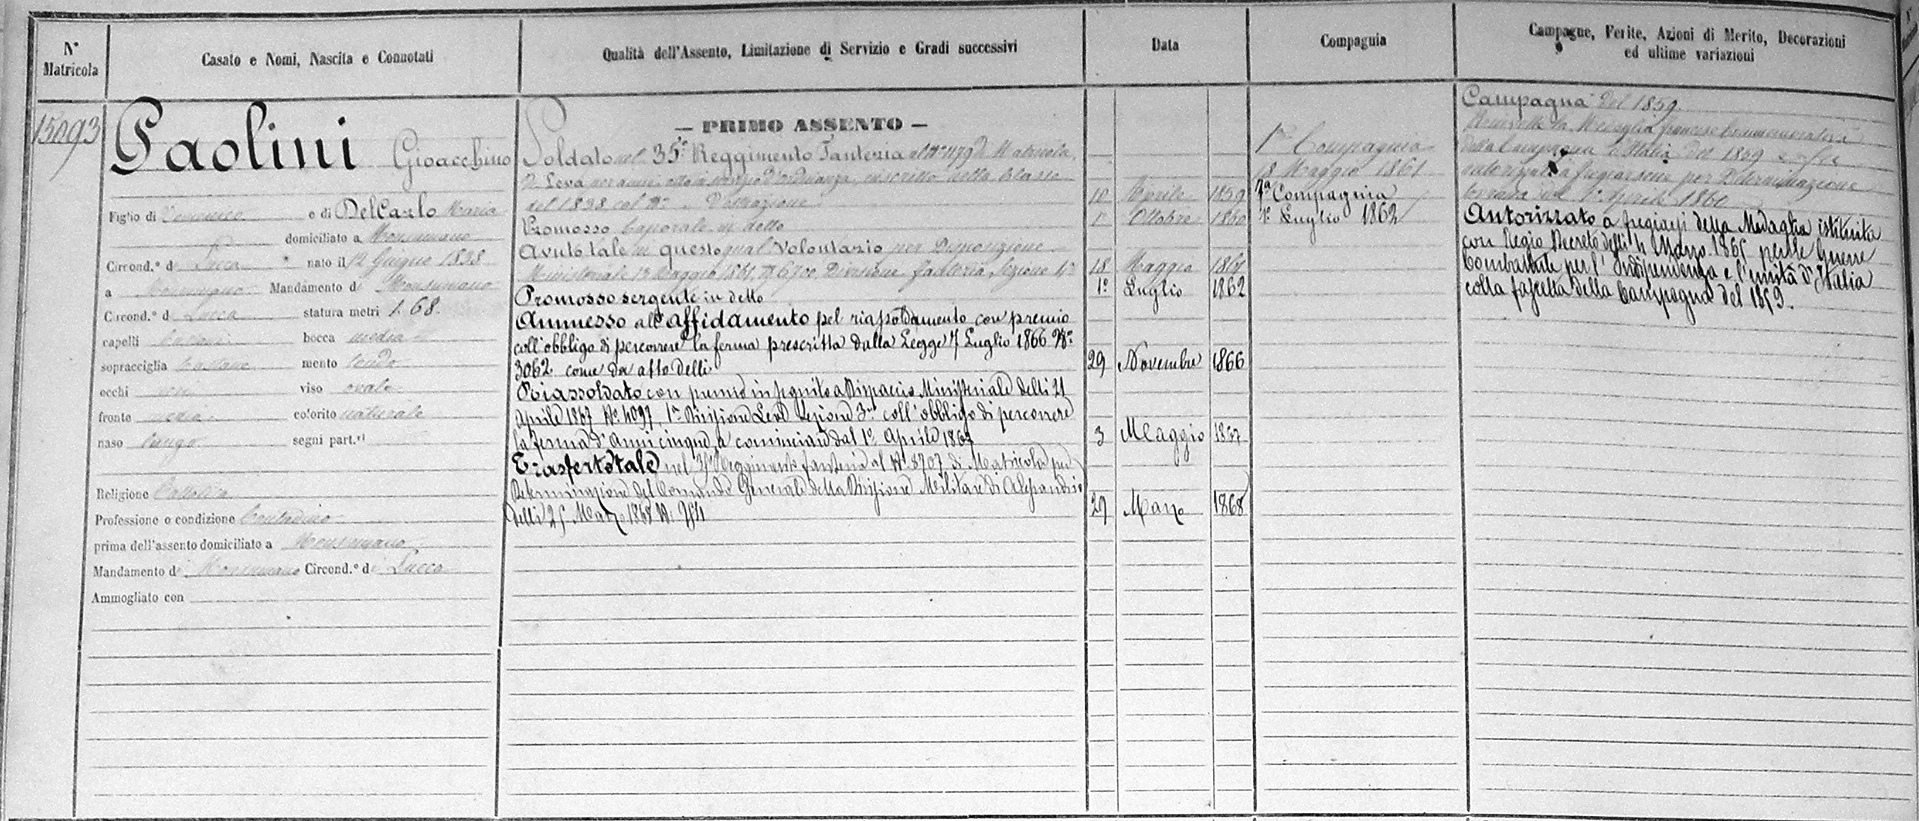 N° Matricola
Casato e Nomi, Nascita e Connotati
Qualità dell'Assento, Limitazione di Servizio e Gradi successivi
Data
Compagnia
Campagne, Ferite, Azioni di Merito, Decorazioni
ed ultime variazioni
15093
Paolini Gioacchino
Figlio di e di Del Carlo Maria
domiciliato a Monsummano
Circond.° di Lucca nato il 12 Giugno 1838
a Monsummano Mandamento di Monsummano
Circond.° di Lucca statura metri 1.68.
capelli castani bocca media
sopracciglia castane mento tondo
occhi viso ovale
fronte media colorito naturale
naso lungo segni part.ri
Religione Cattolica
Professione o condizione Contadino
prima dell'assento domiciliato a Monsummano
Mandamento di Monsummano Circond.° di Lucca
Ammogliato con
— PRIMO ASSENTO —
Soldato nel 35° Reggimento Fanteria al N° 1179 di Matricola
di Leva per anni otto d'ordinanza, inscritto nella Classe
del 1838 col N° Estrazione
Promosso Caporale in detto
Avuto tale in questo qual Volontario per Disposizione
Ministeriale 13 Maggio 1861 N° 6700 Divisione fanteria Sezione 1ª
Promosso sergente in detto
Ammesso all'affidamento pel riassoldamento con premio
coll'obbligo di percorrere la ferma prescritta dalla Legge 7 Luglio 1866 N°
3062 come da atto delli
Riassoldato con premio in seguito a Dispaccio Ministeriale delli 21
Aprile 1867 N° 4097 1ª Divisione Leva Sezione 3ª coll'obbligo di percorrere
la ferma d'anni cinque a cominciare dal 1° Aprile 1867
Trasferto tale nel Reggimento fanteria al N° 5707 di Matricola per
Determinazione del Comando Generale della Divisione Militare di Alessandria
delli 25 Marzo 1868 N°
10 Aprile 1859
1° Ottobre 1860
18 Maggio 1861
1° Luglio 1862
29 Novembre 1866
3 Maggio 1867
29 Marzo 1868
Compagnia
18 Maggio 1861
7ª Compagnia
1° Luglio 1862
Campagna del 1859
la Medaglia francese Commemorativa
della Campagna d'Italia del 1859
autorizzato a fregiarsene per Determinazione
1° Aprile 1860
Autorizzato a fregiarsi della Medaglia istituita
con Regio Decreto delli 4 Marzo 1865 per le Guerre
Combattute per l'Indipendenza e l'unità d'Italia
colla fascetta della Campagna del 1859.